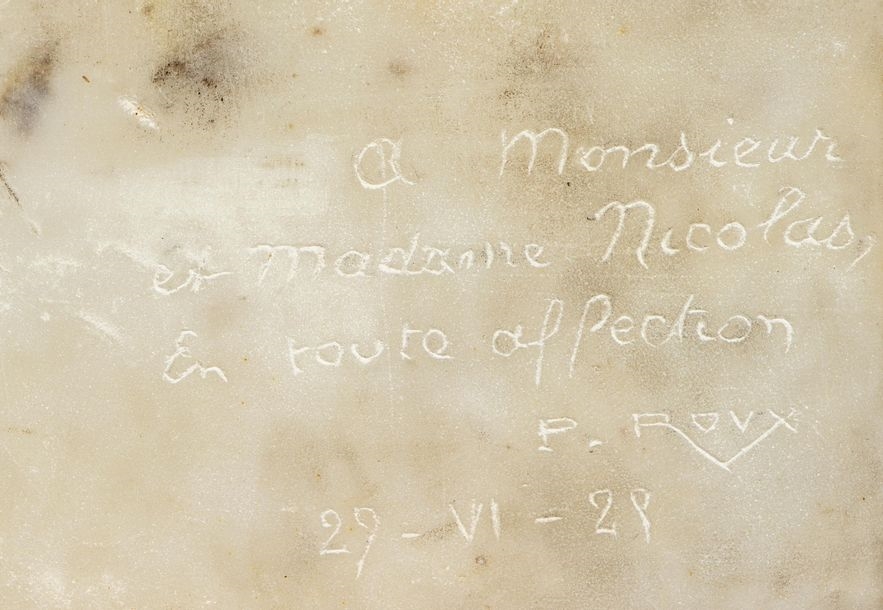 A Monsieur
et madame Nicolas,
En toute affection
P. ROUX
29 - VI - 28